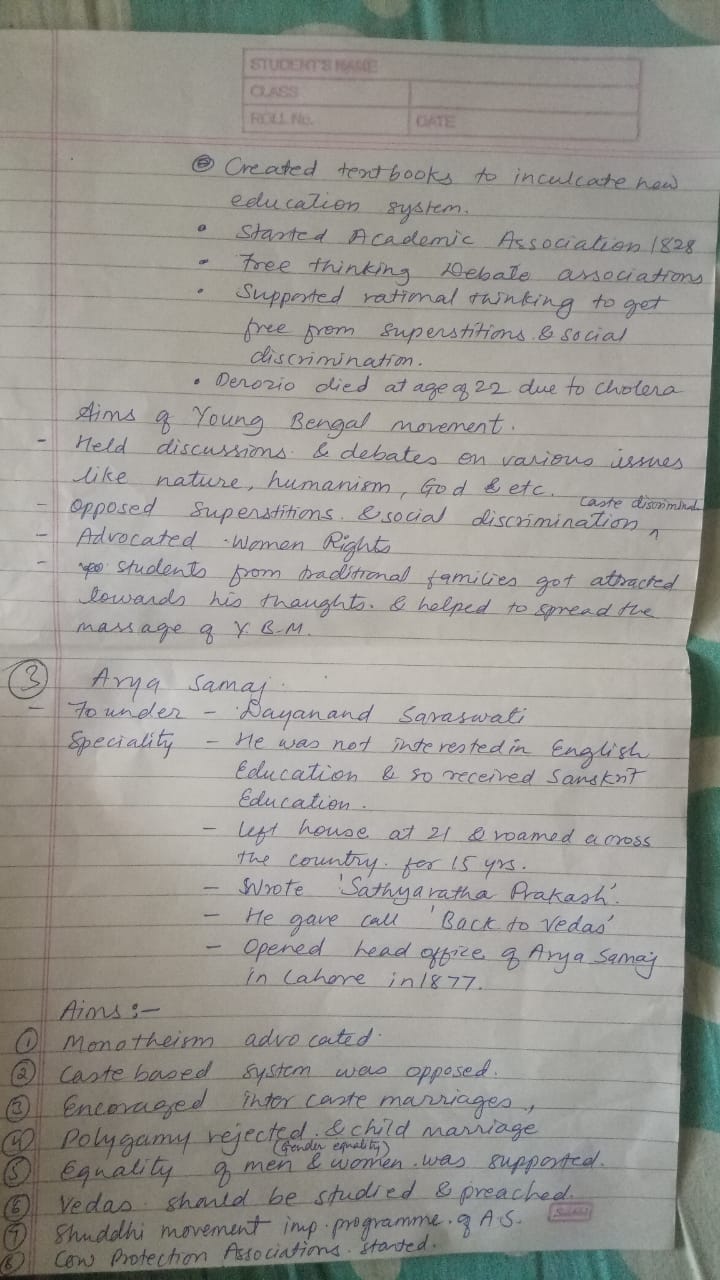 STUDENT'S NAME
CLASS
ROLL No. DATE
Created textbooks to inculcate new
education system.
• Started Academic Association 1828
• Free thinking Debate associations
• Supported rational thinking to get
free from superstitions & social
discrimination.
• Derozio died at age of 22 due to cholera
Aims of Young Bengal movement.
- Held discussions & debates on various issues
like nature, humanism, God & etc.
caste discrimind
- Opposed superstitions & social discrimination ^
- Advocated Women Rights
- students from traditional families got attracted
towards his thoughts. & helped to spread the
massage of Y.B.M.
③ Arya Samaj.
- Founder - Dayanand Saraswati
Speciality - He was not interested in English
Education & so received Sanskrit
Education.
- left house at 21 & roamed across
the country. for 15 yrs.
- Wrote 'Sathyaratha Prakash'.
- He gave call 'Back to Vedas'
- Opened head office of Arya Samaj
in Lahore in 1877.
Aims :-
① Monotheism advocated.
② Caste based system was opposed.
③ Encoraged inter caste marriages,
④ Polygamy rejected. & child marriage
(Gender equality)
⑤ Equality of men & women. was supported.
⑥ Vedas should be studied & preached.
⑦ Shuddhi movement imp. programme. of A.S.
⑧ Cow Protection Associations. started.